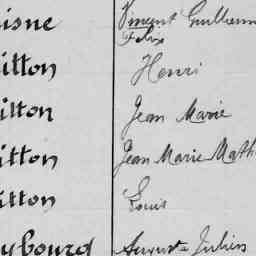 isne Vincent Guillaum
Felix
itton Henri
ilton Jean Marie
itton Jean Marie Math
itton Louis
ybourg Auguste Julien